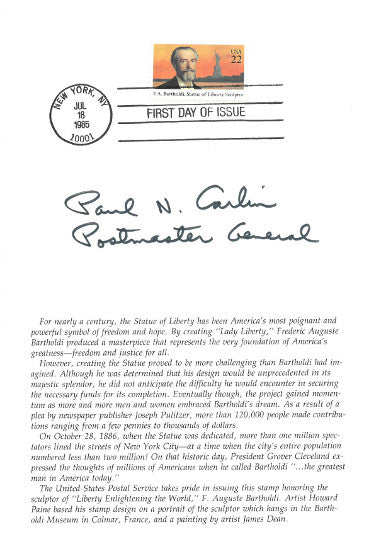 USA
22
F.A. Bartholdi, Statue of Liberty Sculptor
NEW YORK, NY
JUL
18
1985
10001
FIRST DAY OF ISSUE
Paul N. Carlin
Postmaster General
For nearly a century, the Statue of Liberty has been America's most poignant and
powerful symbol of freedom and hope. By creating "Lady Liberty," Frederic Auguste
Bartholdi produced a masterpiece that represents the very foundation of America's
greatness—freedom and justice for all.
However, creating the Statue proved to be more challenging than Bartholdi had im-
agined. Although he was determined that his design would be unprecedented in its
majestic splendor, he did not anticipate the difficulty he would encounter in securing
the necessary funds for its completion. Eventually though, the project gained momen-
tum as more and more men and women embraced Bartholdi's dream. As a result of a
plea by newspaper publisher Joseph Pulitzer, more than 120,000 people made contribu-
tions ranging from a few pennies to thousands of dollars.
On October 28, 1886, when the Statue was dedicated, more than one million spec-
tators lined the streets of New York City—at a time when the city's entire population
numbered less than two million! On that historic day, President Grover Cleveland ex-
pressed the thoughts of millions of Americans when he called Bartholdi "...the greatest
man in America today."
The United States Postal Service takes pride in issuing this stamp honoring the
sculptor of "Liberty Enlightening the World," F. Auguste Bartholdi. Artist Howard
Paine based his stamp design on a portrait of the sculptor which hangs in the Barth-
oldi Museum in Colmar, France, and a painting by artist James Dean.